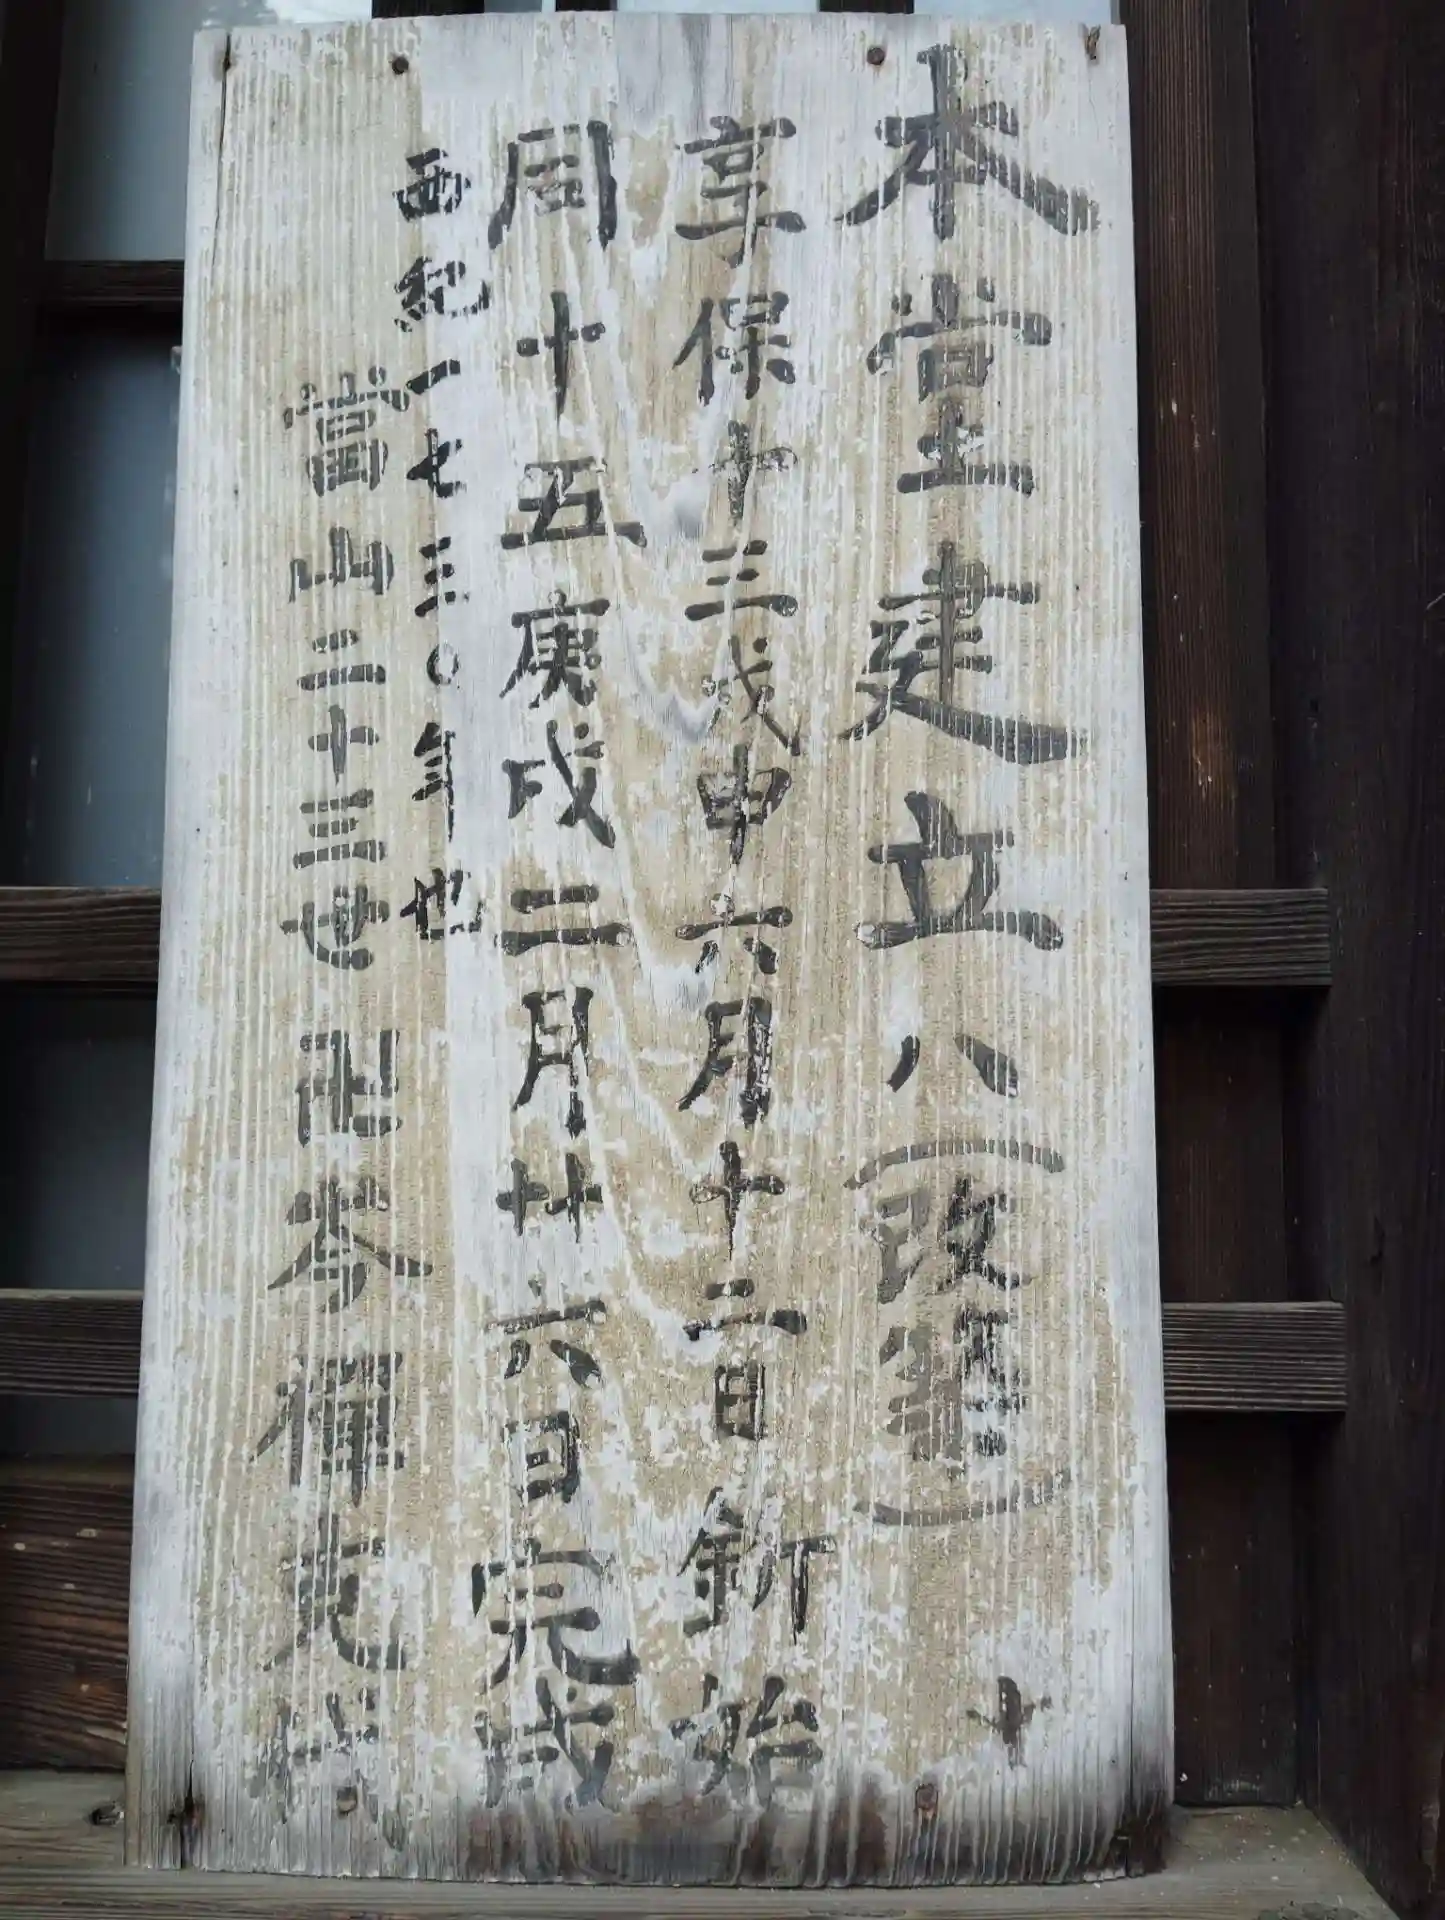 本堂建立八(改築)
享保十三戊申六月十二日釿始
同十五庚戌二月廿六日完成
西紀一七三〇年也
當山二十三世卍岑禅克代